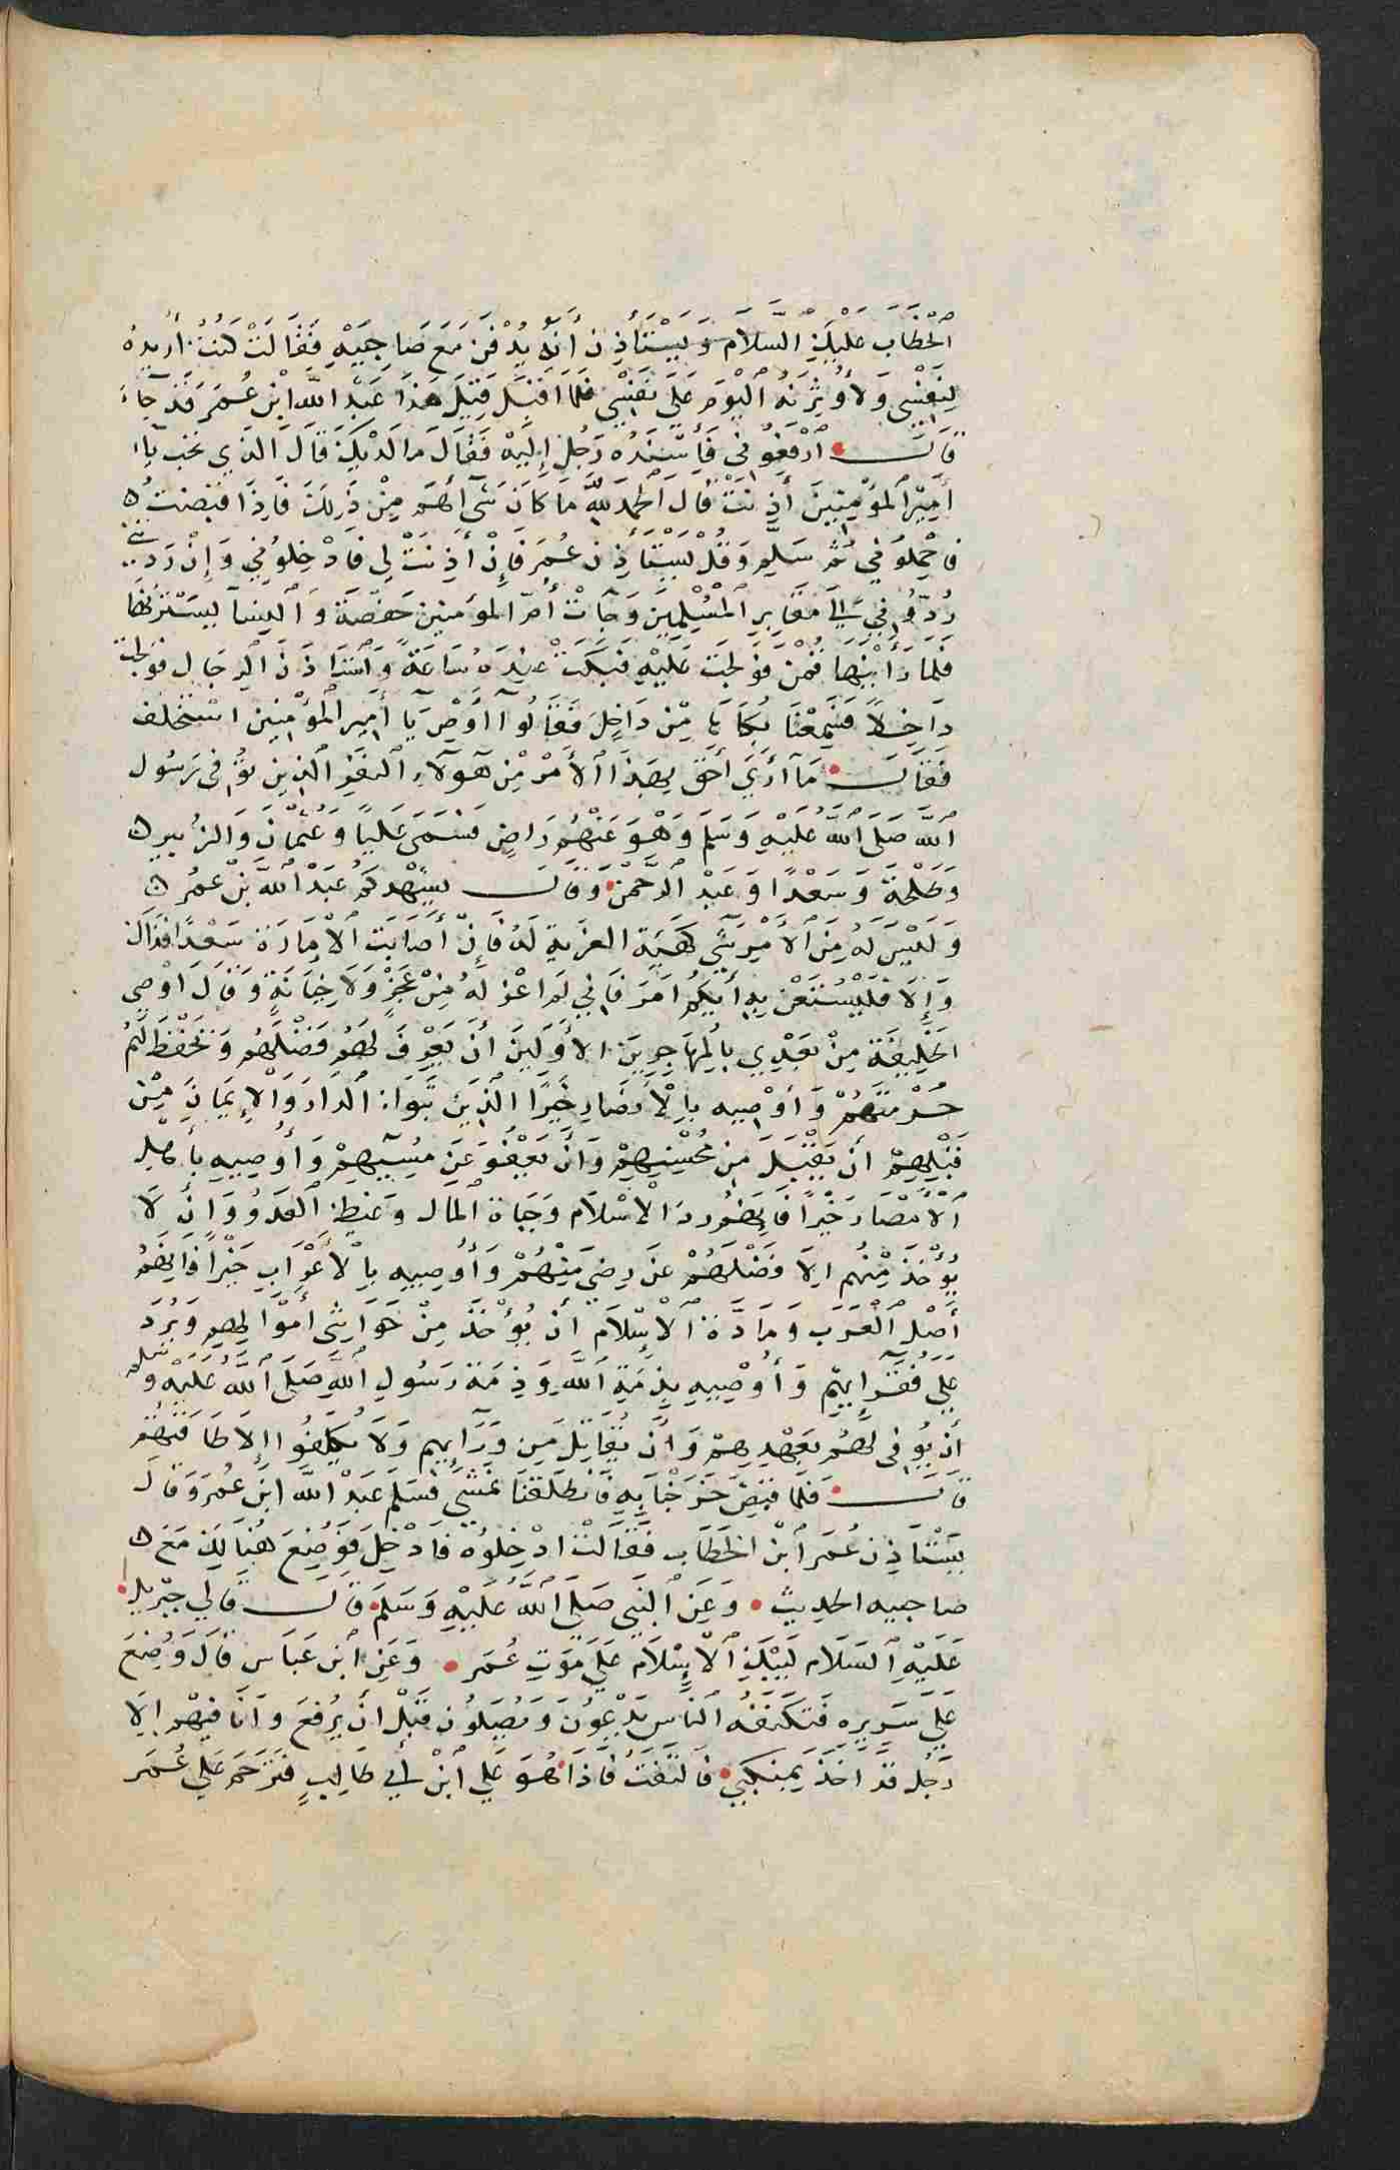 الخطاب عليك السلام ويستأذن أنه يدفن مع صاحبيه فقالت كنت أريده
لنفسي ولأوثرنه اليوم على نفسي فلما اقبل قيل هذا عبد الله ابن عمر قد جاء
قال ارفعوني فأسنده رجل إليه فقال ما لديك قال الذي تحب يا
أمير المؤمنين أذنت قال الحمد لله ما كان شي أهم من ذلك فإذا قبضت
فاحملوني ثم سلم وقل يستأذن عمر فإن أذنت لي فادخلوني وإن ردتني
ردوني إلى مقابر المسلمين وجآت أم المؤمنين حفصة والنسآ يسترنها
فلما رأينها قمن فولجت عليه فبكت عنده ساعة واستاذن الرجال فولجت
داخلا فسمعنا بكاها من داخل فقالوا أوص يا أمير المؤمنين استخلف
فقال ما أري أحق بهذا الأمر من هؤلاء النفر الذين توفي رسول
الله صلى الله عليه وسلم وهو عنهم راض فسمى عليا وعثمان والزبير
وطلحة وسعدا وعبد الرحمن وقال يشهدكم عبد الله بن عمر
وليس له من الأمر شي كهيئة العزية له فإن أصابت الإمارة سعدا فذاك
وإلا فليستعن به أيكم امر فاني لم اعزله من عجز ولا خيانة وقال اوصي
الخليفة من بعدي بالمهاجرين الأولين أن يعرف لهم فضلهم وتحفظ لهم
حرمتهم وأوصيه بالأنصار خيرا الذين تبوا الدار والإيمان من
قبلهم أن يقبل من محسنهم وأن يعفو عن مسيئهم وأوصيه بأهل
الأمصار خيرا فإنهم ردء الإسلام وجباة المال وغيظ العدو وان لا
يؤخذ منهم إلا فضلهم عن رضى منهم وأوصيه بالأعراب خيرا فإنهم
أصل العرب ومادة الإسلام أن يؤخذ من حواشي أموالهم ويرد
على فقرائهم وأوصيه بذمة الله وذمة رسول الله صلى الله عليه وسلم
أن يوفي لهم بعهدهم وأن يقاتل من ورآئهم ولا يكلفوا إلا طاقتهم
قال فلما قبض خرجنا به فانطلقنا نمشي فسلم عبد الله ابن عمر وقال
يستاذن عمر ابن الخطاب فقالت ادخلوه فادخل فوضع هنالك مع
صاحبيه الحديث وعن النبي صلى الله عليه وسلم قال قال لي جبريل
عليه السلام ليبك الإسلام على موت عمر وعن ابن عباس قال وضع
على سريره فتكنفه الناس يدعون ويصلون قبل أن يرفع وانا فيهم إلا
رجل قد اخذ بمنكبي فالتفت فاذا هو علي ابن أبي طالب فترحم على عمر